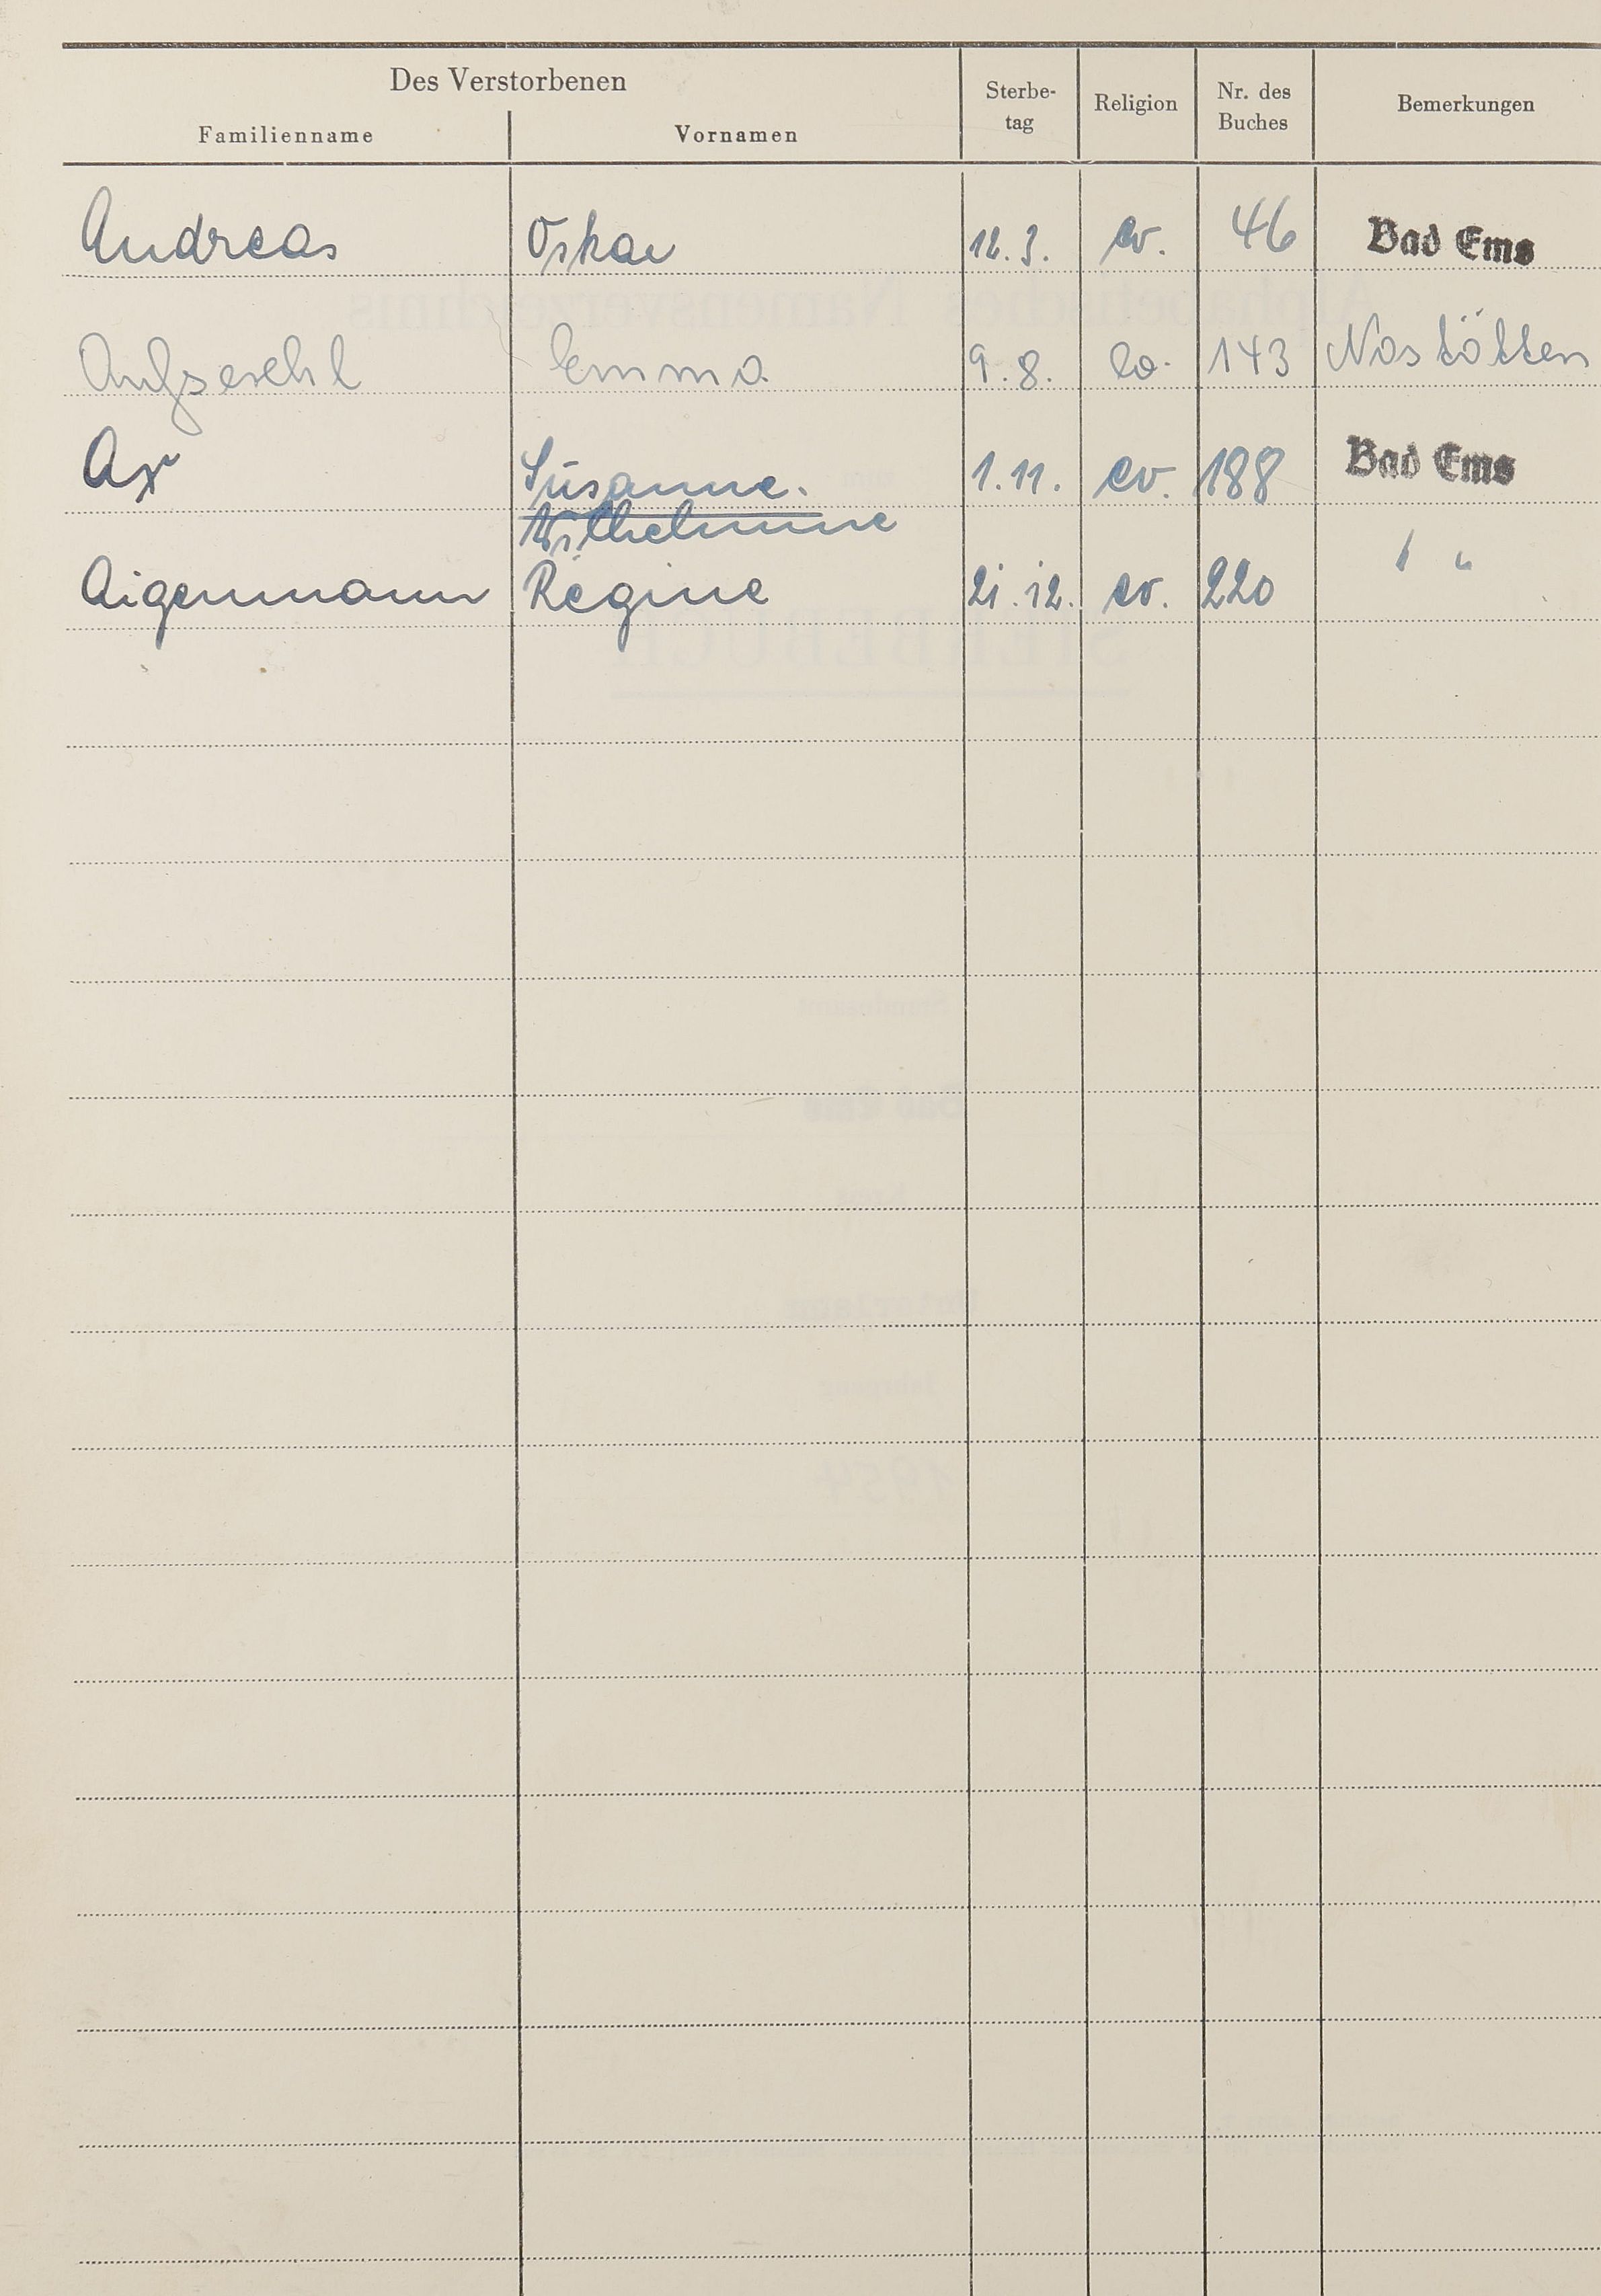 Des Verstorbenen
Familienname Vornamen Sterbe-tag Religion Nr. des Buches Bemerkungen
Andreas Oskar 12.3. ev. 46 Bad Ems
Emma 9.8. ev. 143 Nastätten
Ax Susanne. 1.11. ev. 188 Bad Ems
Wilhelmine
Aigenmann Regine 21.12. ev. 220 " "